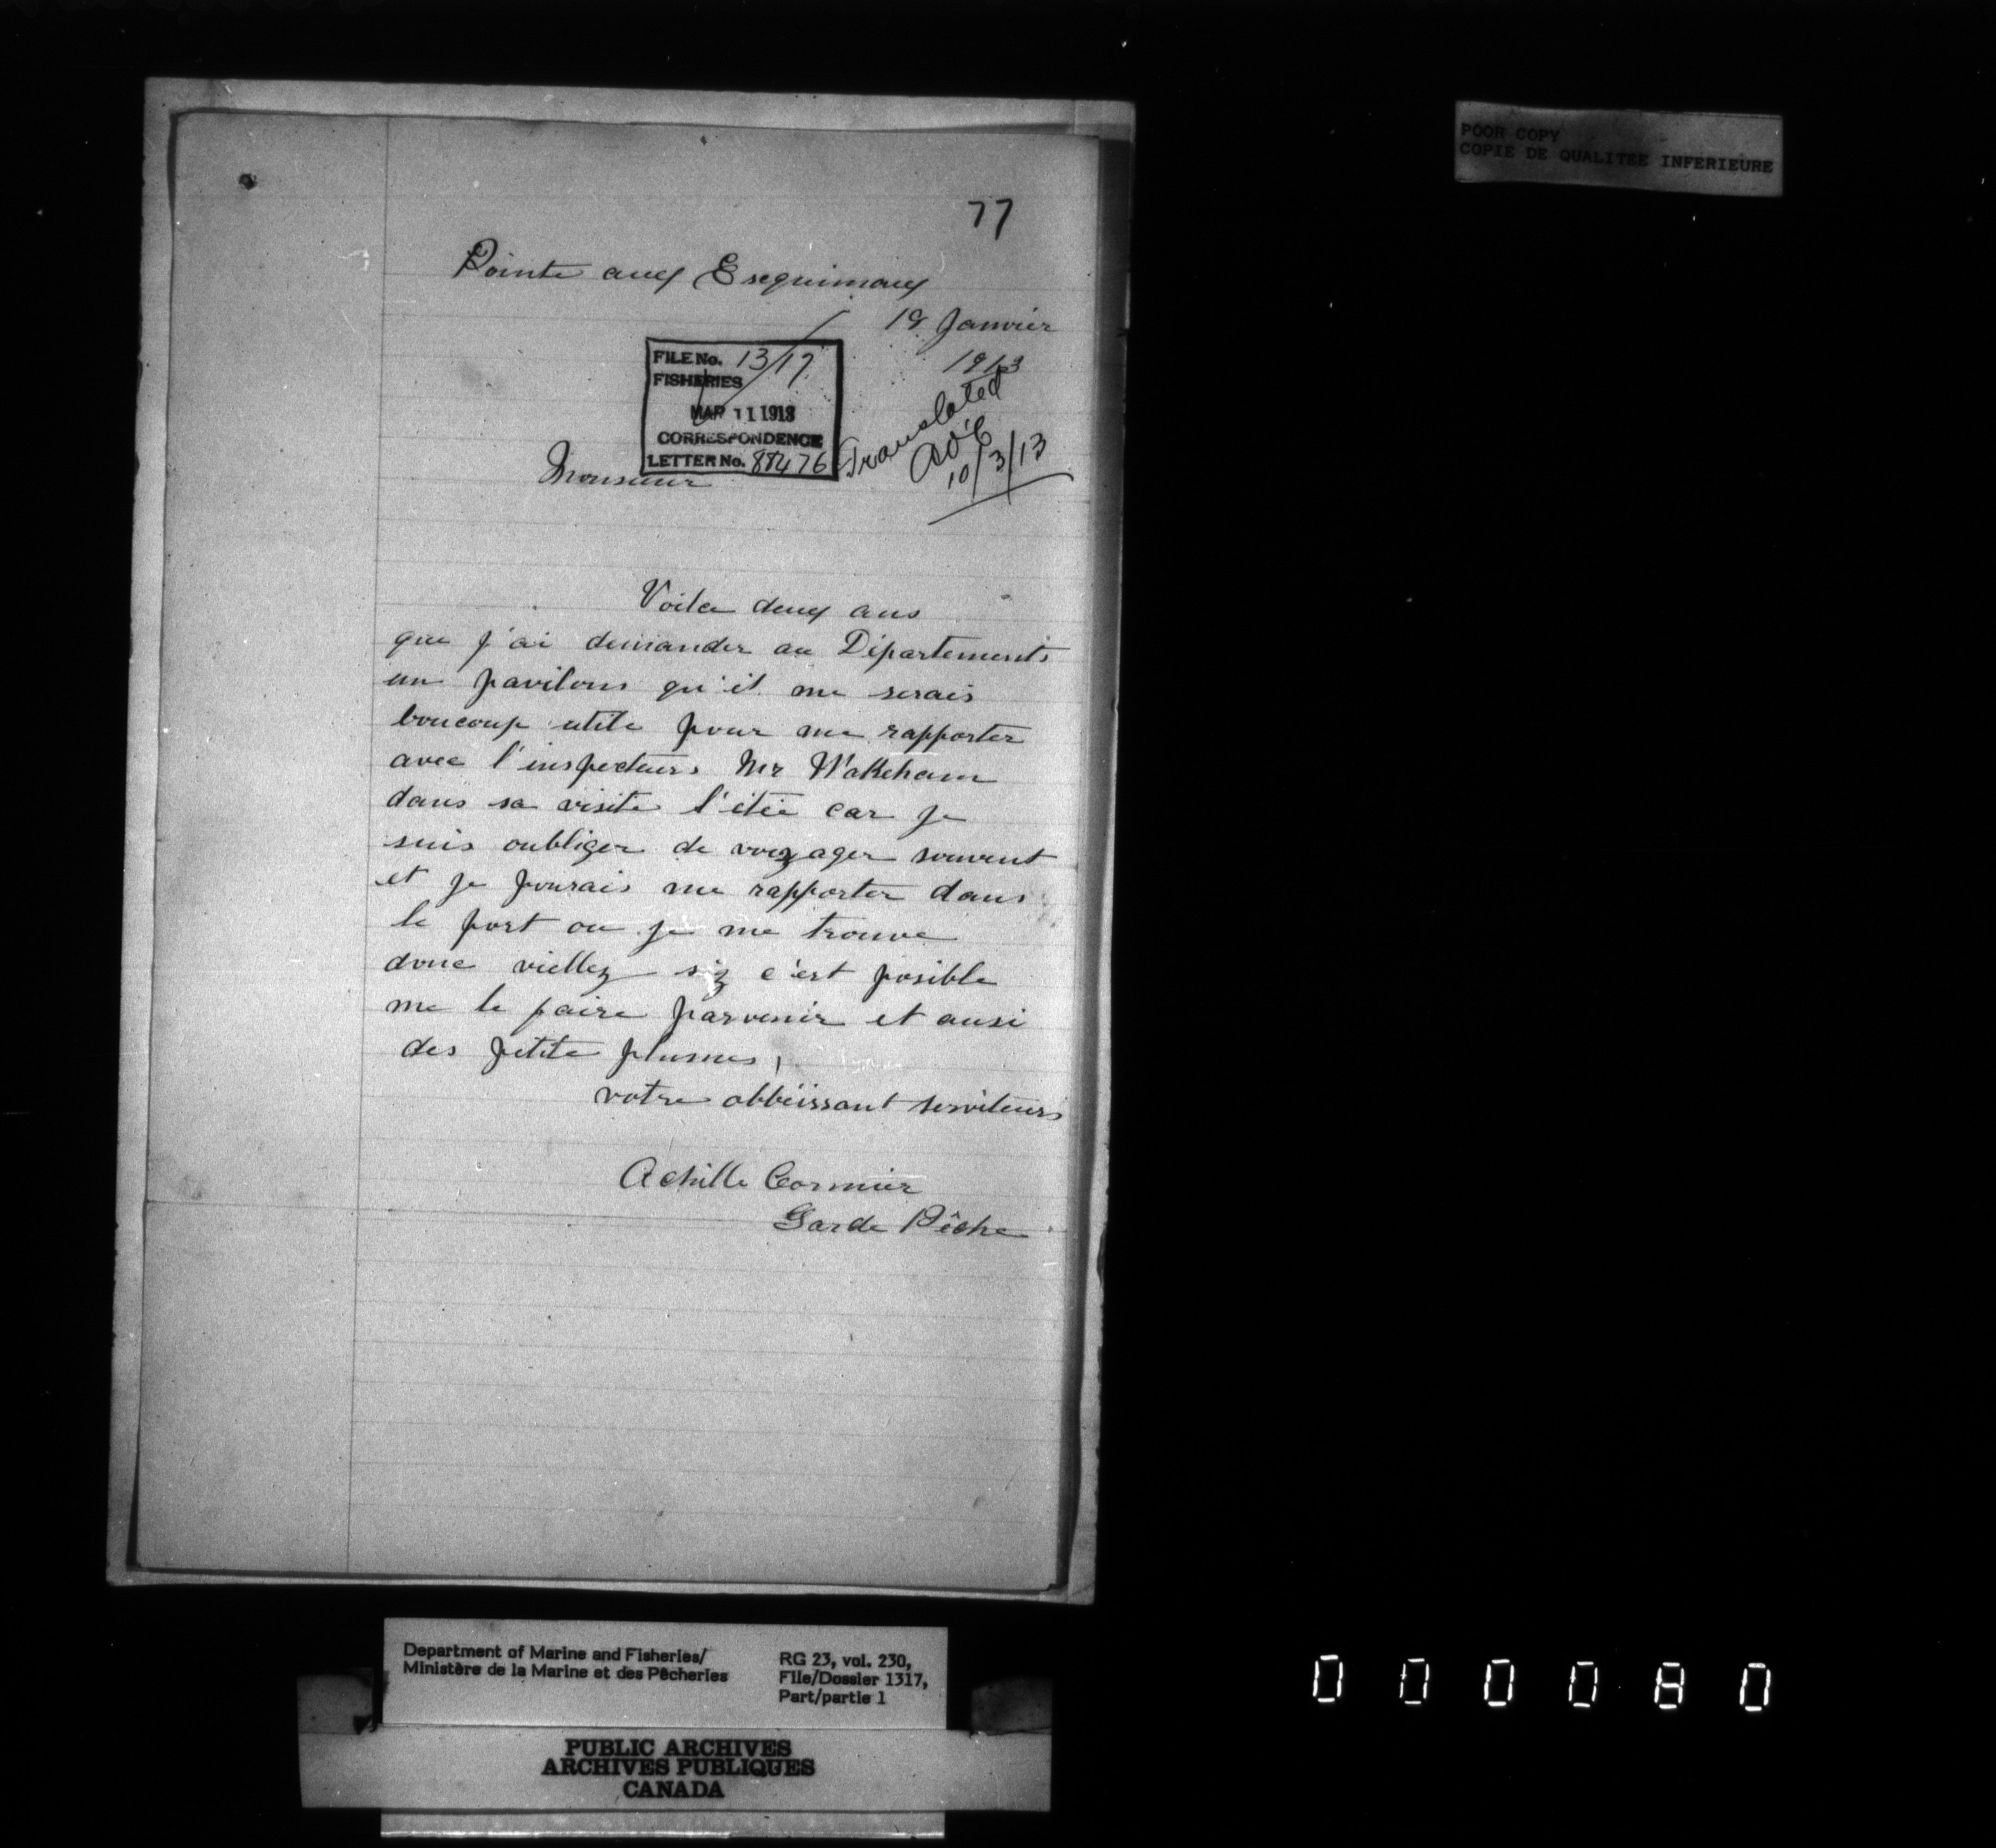 POOR COPY
COPIE DE QUALITEE INFERIEURE
77
Pointe aux Esequimaux
19 Janvier
1913
FILE No. 13/17
FISHERIES
MAR 11 1913
CORRESPONDENCE
LETTER No. 88476
Translated
10/3/13
Monsieur
Voila deux ans
que j'ai demander au Départements
un pavilons qu'il me serais
boucoup utile pour me rapporter
avec l'inspecteurs Mr Wakeham
dans sa visite l'étée car je
suis oubliger de voyager souvent
et je pourais me rapporter dans
le port ou je me trouve
donc viellez si c'est posible
me le faire parvenir et ausi
des petite plumes,
votre obbéissant serviteurs
Achille Cormier
Garde Pêche
Department of Marine and Fisheries/
Ministère de la Marine et des Pêcheries
RG 23, vol. 230,
File/Dossier 1317,
Part/partie 1
PUBLIC ARCHIVES
ARCHIVES PUBLIQUES
CANADA
000080